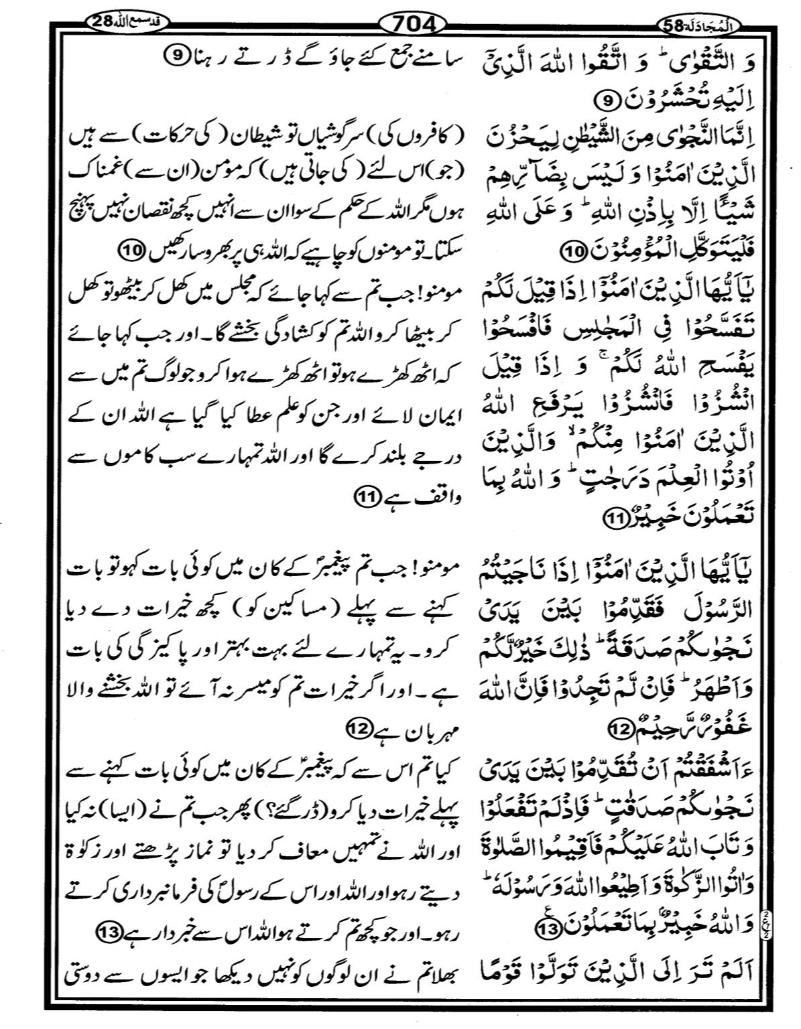 اَلْمُجَادَلَة 58
704
قد سمع الله 28
وَ التَّقْوٰى ؕ وَ اتَّقُوا اللّٰهَ الَّذِیْۤ
اِلَیْهِ تُحْشَرُوْنَ 9
اِنَّمَا النَّجْوٰى مِنَ الشَّیْطٰنِ لِیَحْزُنَ
الَّذِیْنَ اٰمَنُوْا وَ لَیْسَ بِضَآرِّهِمْ
شَیْـًٔا اِلَّا بِاِذْنِ اللّٰهِ ؕ وَ عَلَى اللّٰهِ
فَلْیَتَوَكَّلِ الْمُؤْمِنُوْنَ 10
یٰۤاَیُّهَا الَّذِیْنَ اٰمَنُوْۤا اِذَا قِیْلَ لَكُمْ
تَفَسَّحُوْا فِی الْمَجٰلِسِ فَافْسَحُوْا
یَفْسَحِ اللّٰهُ لَكُمْ ۚ وَ اِذَا قِیْلَ
انْشُزُوْا فَانْشُزُوْا یَرْفَعِ اللّٰهُ
الَّذِیْنَ اٰمَنُوْا مِنْكُمْ ۙ وَالَّذِیْنَ
اُوْتُوا الْعِلْمَ دَرَجٰتٍ ؕ وَ اللّٰهُ بِمَا
تَعْمَلُوْنَ خَبِیْرٌ 11
یٰۤاَیُّهَا الَّذِیْنَ اٰمَنُوْۤا اِذَا نَاجَیْتُمُ
الرَّسُوْلَ فَقَدِّمُوْا بَیْنَ یَدَیْ
نَجْوٰىكُمْ صَدَقَةً ؕ ذٰلِكَ خَیْرٌ لَّكُمْ
وَ اَطْهَرُ ؕ فَاِنْ لَّمْ تَجِدُوْا فَاِنَّ اللّٰهَ
غَفُوْرٌ رَّحِیْمٌ 12
ءَاَشْفَقْتُمْ اَنْ تُقَدِّمُوْا بَیْنَ یَدَیْ
نَجْوٰىكُمْ صَدَقٰتٍ ؕ فَاِذْ لَمْ تَفْعَلُوْا
وَ تَابَ اللّٰهُ عَلَیْكُمْ فَاَقِیْمُوا الصَّلٰوةَ
وَ اٰتُوا الزَّكٰوةَ وَ اَطِیْعُوا اللّٰهَ وَ رَسُوْلَهٗ ؕ
وَ اللّٰهُ خَبِیْرٌۢ بِمَا تَعْمَلُوْنَ 13
اَلَمْ تَرَ اِلَى الَّذِیْنَ تَوَلَّوْا قَوْمًا
سامنے جمع کئے جاؤ گے ڈرتے رہنا 9
(کافروں کی) سرگوشیاں تو شیطان (کی حرکات) سے ہیں
(جو) اس لئے (کی جاتی ہیں) کہ مومن (ان سے) غمناک
ہوں مگر اللہ کے حکم کے سوا ان سے انہیں کچھ نقصان نہیں پہنچ
سکتا۔ تو مومنوں کو چاہیے کہ اللہ ہی پر بھروسا رکھیں 10
مومنو! جب تم سے کہا جائے کہ مجلس میں کھل کر بیٹھو تو کھل
کر بیٹھا کرو اللہ تم کو کشادگی بخشے گا۔ اور جب کہا جائے
کہ اٹھ کھڑے ہو تو اٹھ کھڑے ہوا کرو جو لوگ تم میں سے
ایمان لائے اور جن کو علم عطا کیا گیا ہے اللہ ان کے
درجے بلند کرے گا اور اللہ تمہارے سب کاموں سے
واقف ہے 11
مومنو! جب تم پیغمبرؐ کے کان میں کوئی بات کہو تو بات
کہنے سے پہلے (مساکین کو) کچھ خیرات دے دیا
کرو۔ یہ تمہارے لئے بہت بہتر اور پاکیزگی کی بات
ہے۔ اور اگر خیرات تم کو میسر نہ آئے تو اللہ بخشنے والا
مہربان ہے 12
کیا تم اس سے کہ پیغمبرؐ کے کان میں کوئی بات کہنے سے
پہلے خیرات دیا کرو (ڈر گئے؟) پھر جب تم نے (ایسا) نہ کیا
اور اللہ نے تمہیں معاف کر دیا تو نماز پڑھتے اور زکوٰۃ
دیتے رہو اور اللہ اور اس کے رسولؐ کی فرمانبرداری کرتے
رہو۔ اور جو کچھ تم کرتے ہو اللہ اس سے خبردار ہے 13
بھلا تم نے ان لوگوں کو نہیں دیکھا جو ایسوں سے دوستی